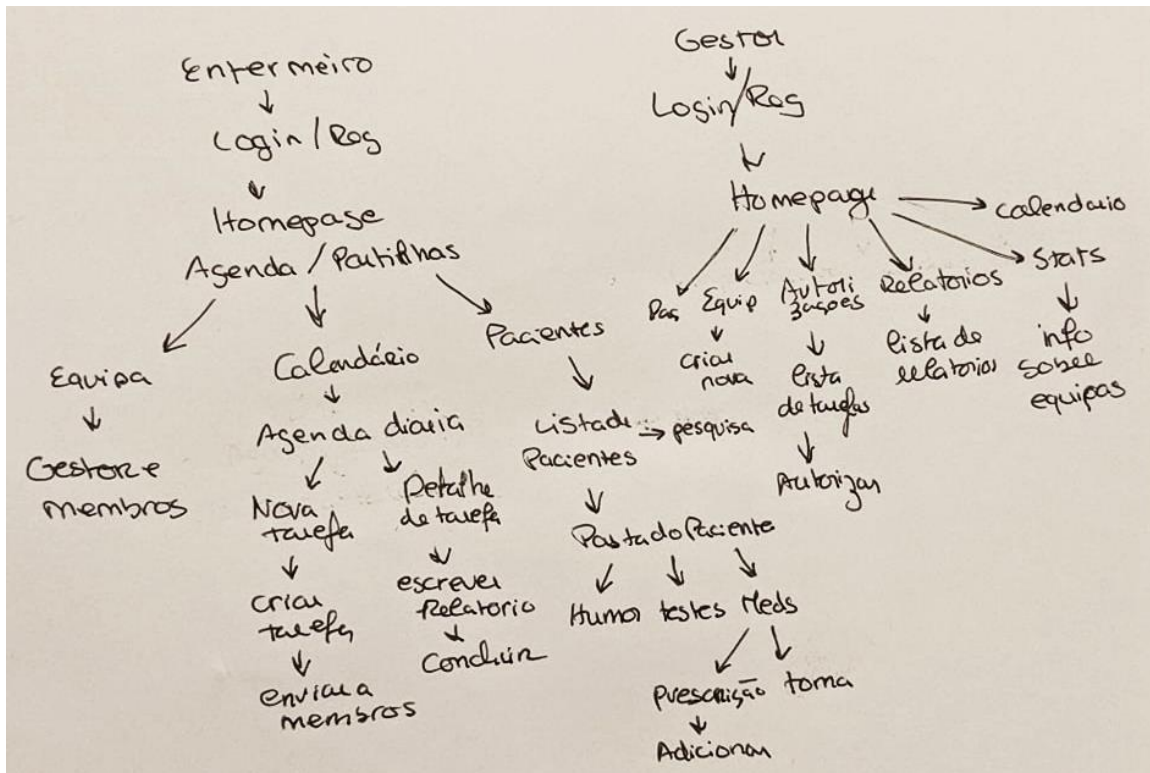 Enfermeiro
Login / Reg
Homepage
Agenda / Partilhas
Equipa
Gestor e
membros
Calendário
Agenda diaria
Nova
tarefa
criar
tarefa
enviar a
membros
Detalhe
de tarefa
escrever
Relatorio
Concluir
Pacientes
Lista de
Pacientes
pesquisa
Pasta do Paciente
Humor testes Meds
prescrição toma
Adicionar
Gestor
Login / Reg
Homepage
Calendario
Stats
info
sobre
equipas
Pac
Equip
criar
nova
Autori
zações
lista
de tarefas
Autorizar
Relatorios
lista de
relatorios